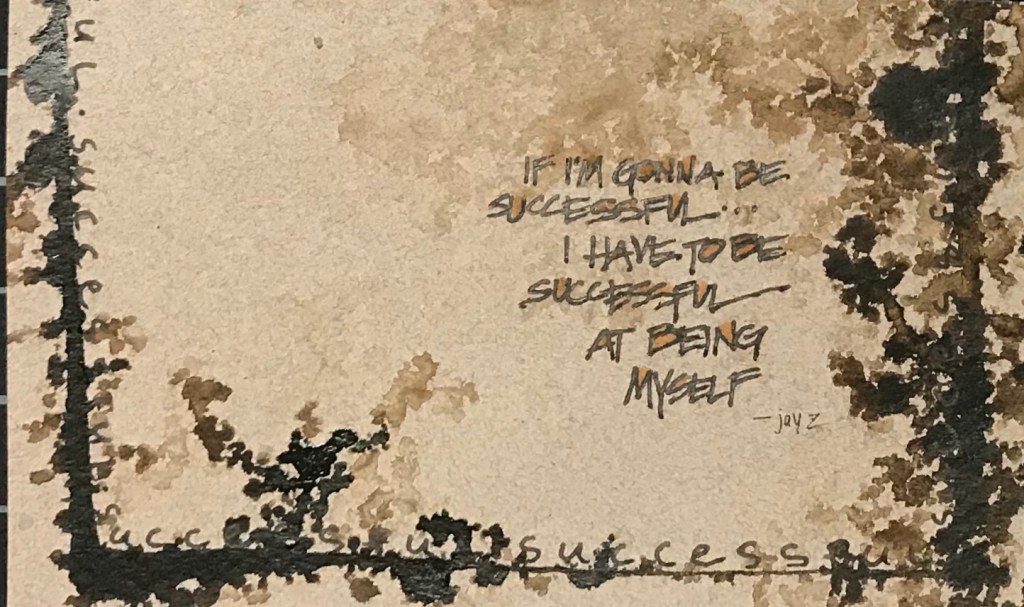 IF I'M GONNA BE
SUCCESSFUL...
I HAVE TO BE
SUCCESSFUL
AT BEING
MYSELF
— jay z
successful successful